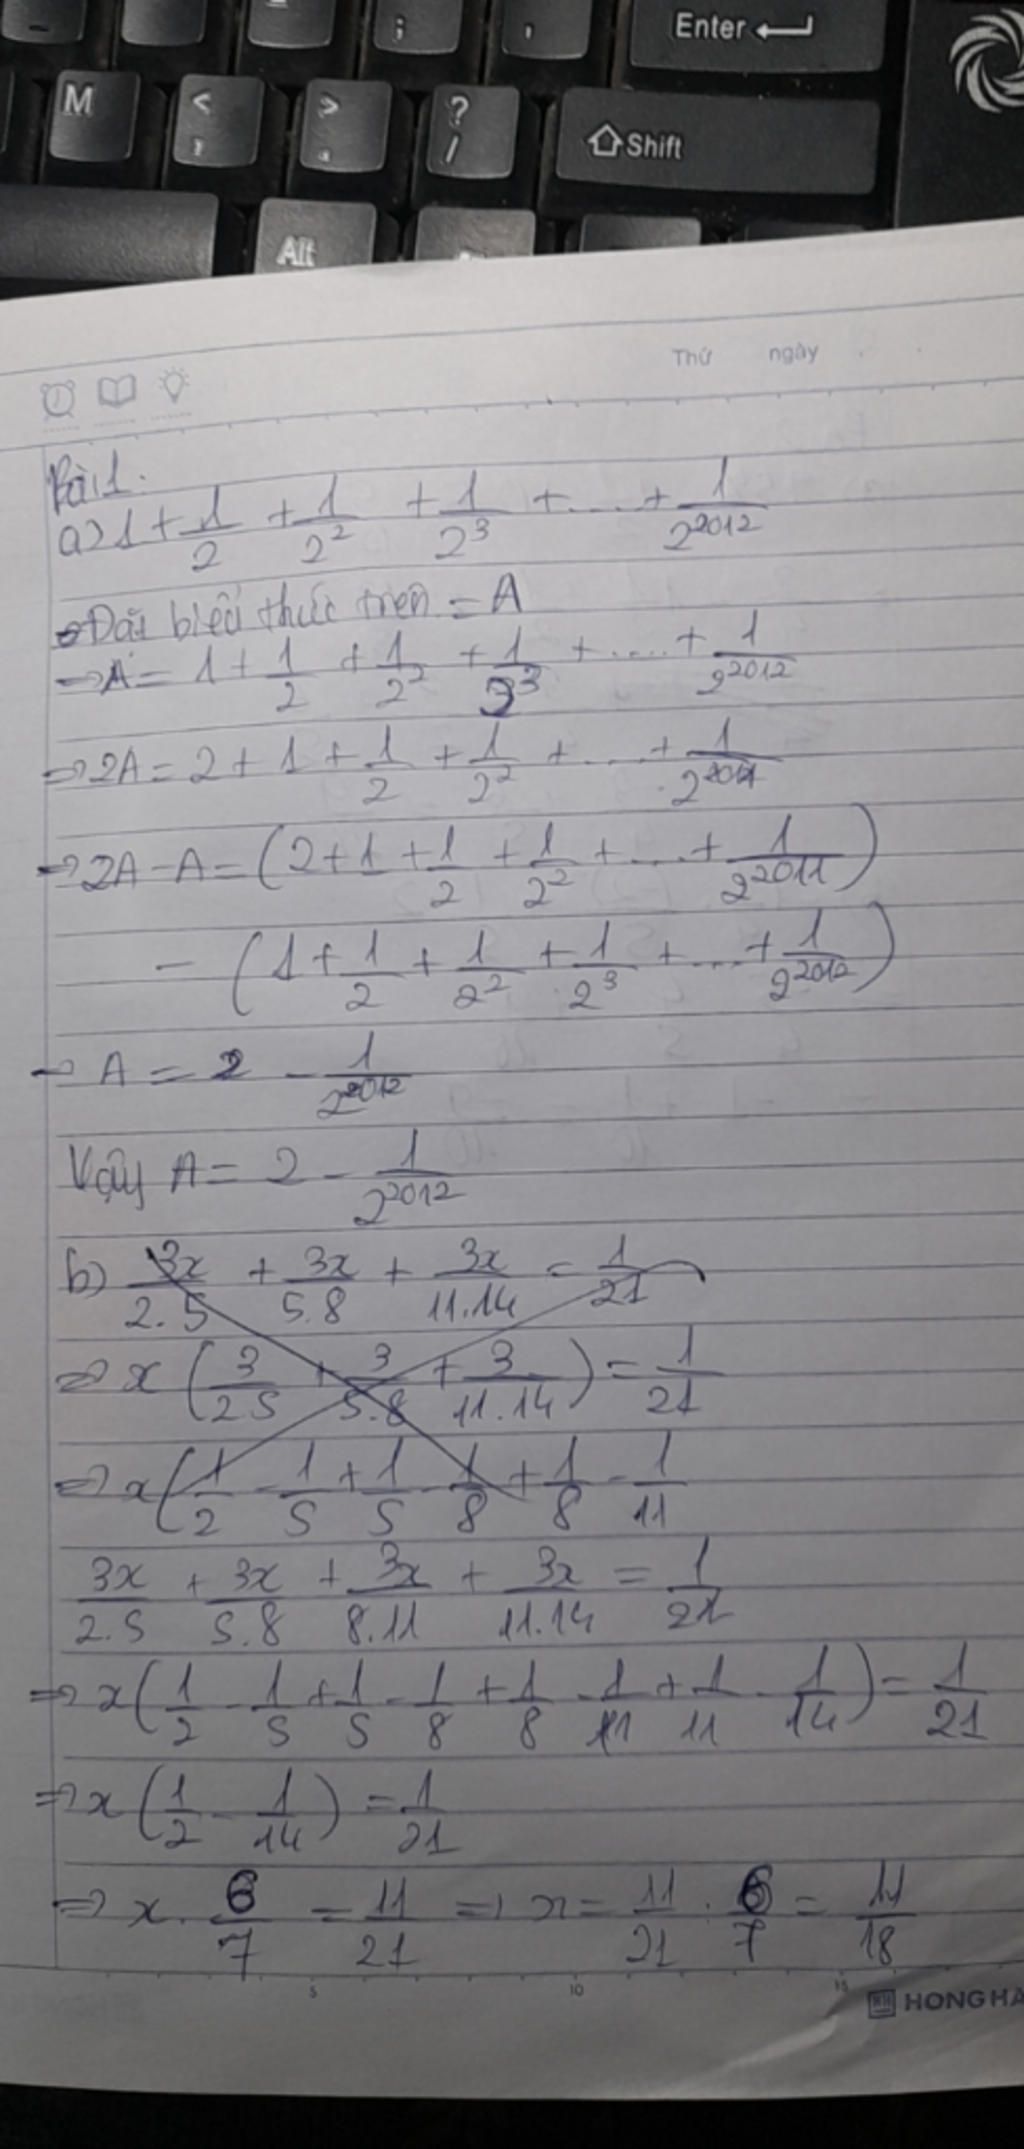 Enter
M
<
,
>
?
/
Shift
Alt
Thứ ngày
Bài 1.
a) 1 + 1/2 + 1/2^2 + 1/2^3 + .... + 1/2^2012
Đặt biểu thức trên = A
=> A = 1 + 1/2 + 1/2^2 + 1/2^3 + .... + 1/2^2012
=> 2A = 2 + 1 + 1/2 + 1/2^2 + .... + 1/2^2011
=> 2A - A = (2 + 1 + 1/2 + 1/2^2 + .... + 1/2^2011)
- (1 + 1/2 + 1/2^2 + 1/2^3 + .... + 1/2^2012)
=> A = 2 - 1/2^2012
Vậy A = 2 - 1/2^2012
b) 3x/2.5 + 3x/5.8 + 3x/11.14 = 1/21
=> x (3/2.5 + 3/5.8 + 3/11.14) = 1/21
=> x (1/2 - 1/5 + 1/5 - 1/8 + 1/8 - 1/11
3x/2.5 + 3x/5.8 + 3x/8.11 + 3x/11.14 = 1/21
=> x (1/2 - 1/5 + 1/5 - 1/8 + 1/8 - 1/11 + 1/11 - 1/14) = 1/21
=> x (1/2 - 1/14) = 1/21
=> x . 6/7 = 11/21 => x = 11/21 . 6/7 = 11/18
5 10 15
HONG HA